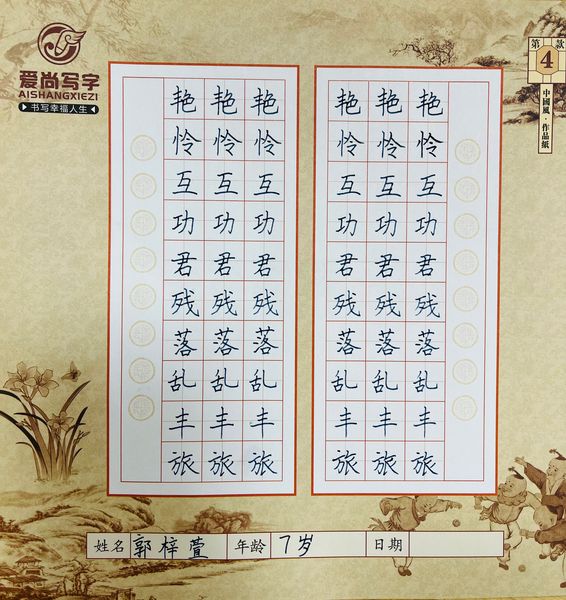 爱尚写字
AISHANGXIEZI
书写幸福人生
第4款
中國風·作品紙
艳艳艳 艳艳艳
怜怜怜 怜怜怜
互互互 互互互
功功功 功功功
君君君 君君君
残残残 残残残
落落落 落落落
乱乱乱 乱乱乱
丰丰丰 丰丰丰
旅旅旅 旅旅旅
姓名 郭梓萱 年龄 7岁 日期